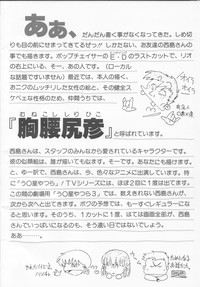 ああ、
だんだん書く事がなくなってきた。しめ切
りも目の前にせまってきてるぜっ!! しかたない、お友達の西島さんの
事でも描きます。ポップチェイサーのE-Dのラストカットで、リオ
の右上にいる、そー、あの人です。(ローカル
な話題ですいません) 最近では、本人の描く
おニクのムッチリした女性の絵と、その健全ス
ケベェな性格のため、仲間うちでは、
『胸腰尻彦』
むねこししりひこ
と呼ばれています。
西島さんは、スタッフのみなから愛されているキャラクターです。
彼の似顔絵は、誰が描いても似てます。そーです、あなたにも描けます。
と、ゆー訳で、西島さんは、今、色々なアニメに出演しています。特
に「うる星やつら」/TVシリーズには、ほぼ2回に1度は出てます。
この間の劇場用「うる星やつら3」では、数えきれない西島さんが、
次から次へと出てきます。ボクの予想では、もーすぐレギュラーにな
ると思います。そのうち、1カットに1度、はては画面全部が、西島
さんでいっぱいになるのも、そう遠い日ではないでしょう。
ああ――。